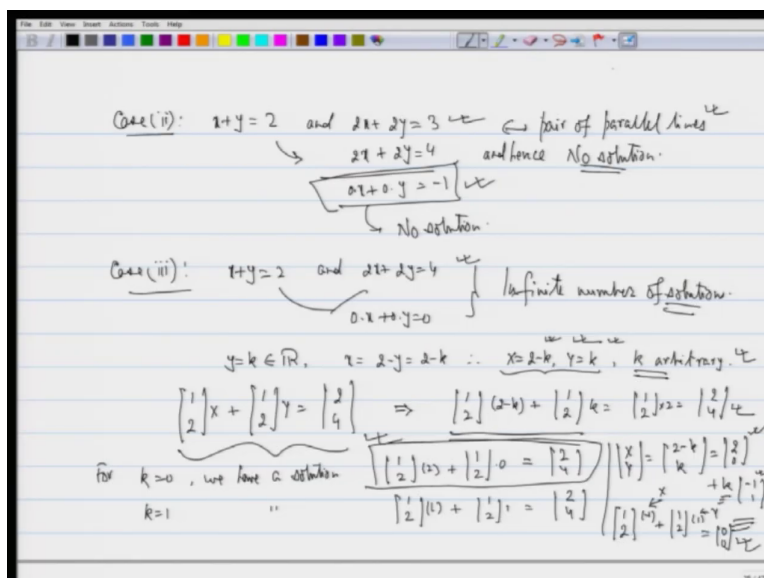 File Edit View Insert Actions Tools Help
Case(ii): x+y=2 and 2x+2y=3 ← pair of parallel lines
2x+2y=4 and hence No solution.
0.x+0.y=-1
No solution.
Case(iii): x+y=2 and 2x+2y=4 } Infinite number of solution.
0.x+0.y=0
y=k ∈ ℝ, x=2-y=2-k ∴ x=2-k, y=k, k arbitrary.
[1 2]x + [1 2]y = [2 4] ⇒ [1 2](2-k) + [1 2]k = [1 2]×2 = [2 4]
For k=0, we have a solution [1 2](2) + [1 2].0 = [2 4] [x y] = [2-k k] = [2 0] + k[-1 1]
k=1 " [1 2](1) + [1 2]1 = [2 4] [1 2](-1) + [1 2](1) = [0 0]